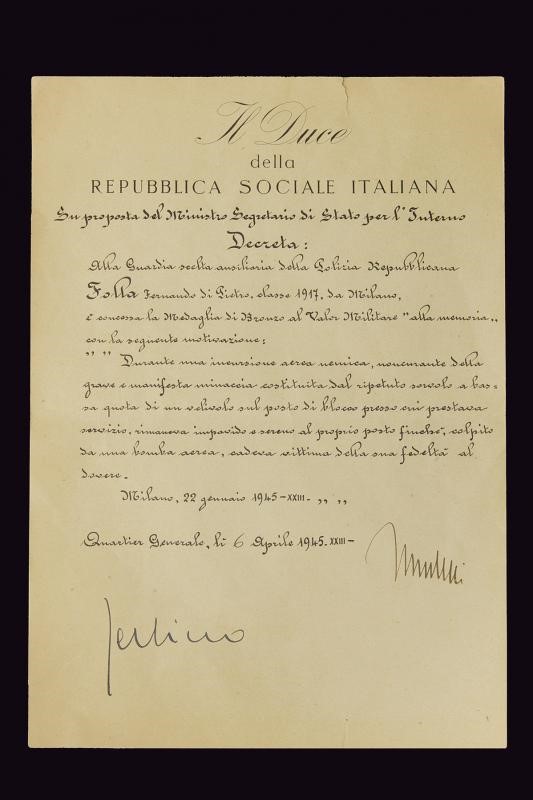 Il Duce
della
REPUBBLICA SOCIALE ITALIANA
Su proposta del Ministro Segretario di Stato per l'Interno
Decreta:
Alla Guardia scelta ausiliaria della Polizia Repubblicana
Folla Fernando di Pietro, classe 1917, da Milano,
è concessa la Medaglia di Bronzo al Valor Militare "alla memoria"
con la seguente motivazione:
" " Durante una incursione aerea nemica, noncurante della
grave e manifesta minaccia costituita dal ripetuto sorvolo a bas-
sa quota di un velivolo sul posto di blocco presso cui prestava
servizio, rimaneva impavido e sereno al proprio posto finchè, colpito
da una bomba aerea, cadeva vittima della sua fedeltà al
dovere.-
Milano, 22 gennaio 1945-XXIII- " "
Quartier Generale, lì 6 Aprile 1945-XXIII-